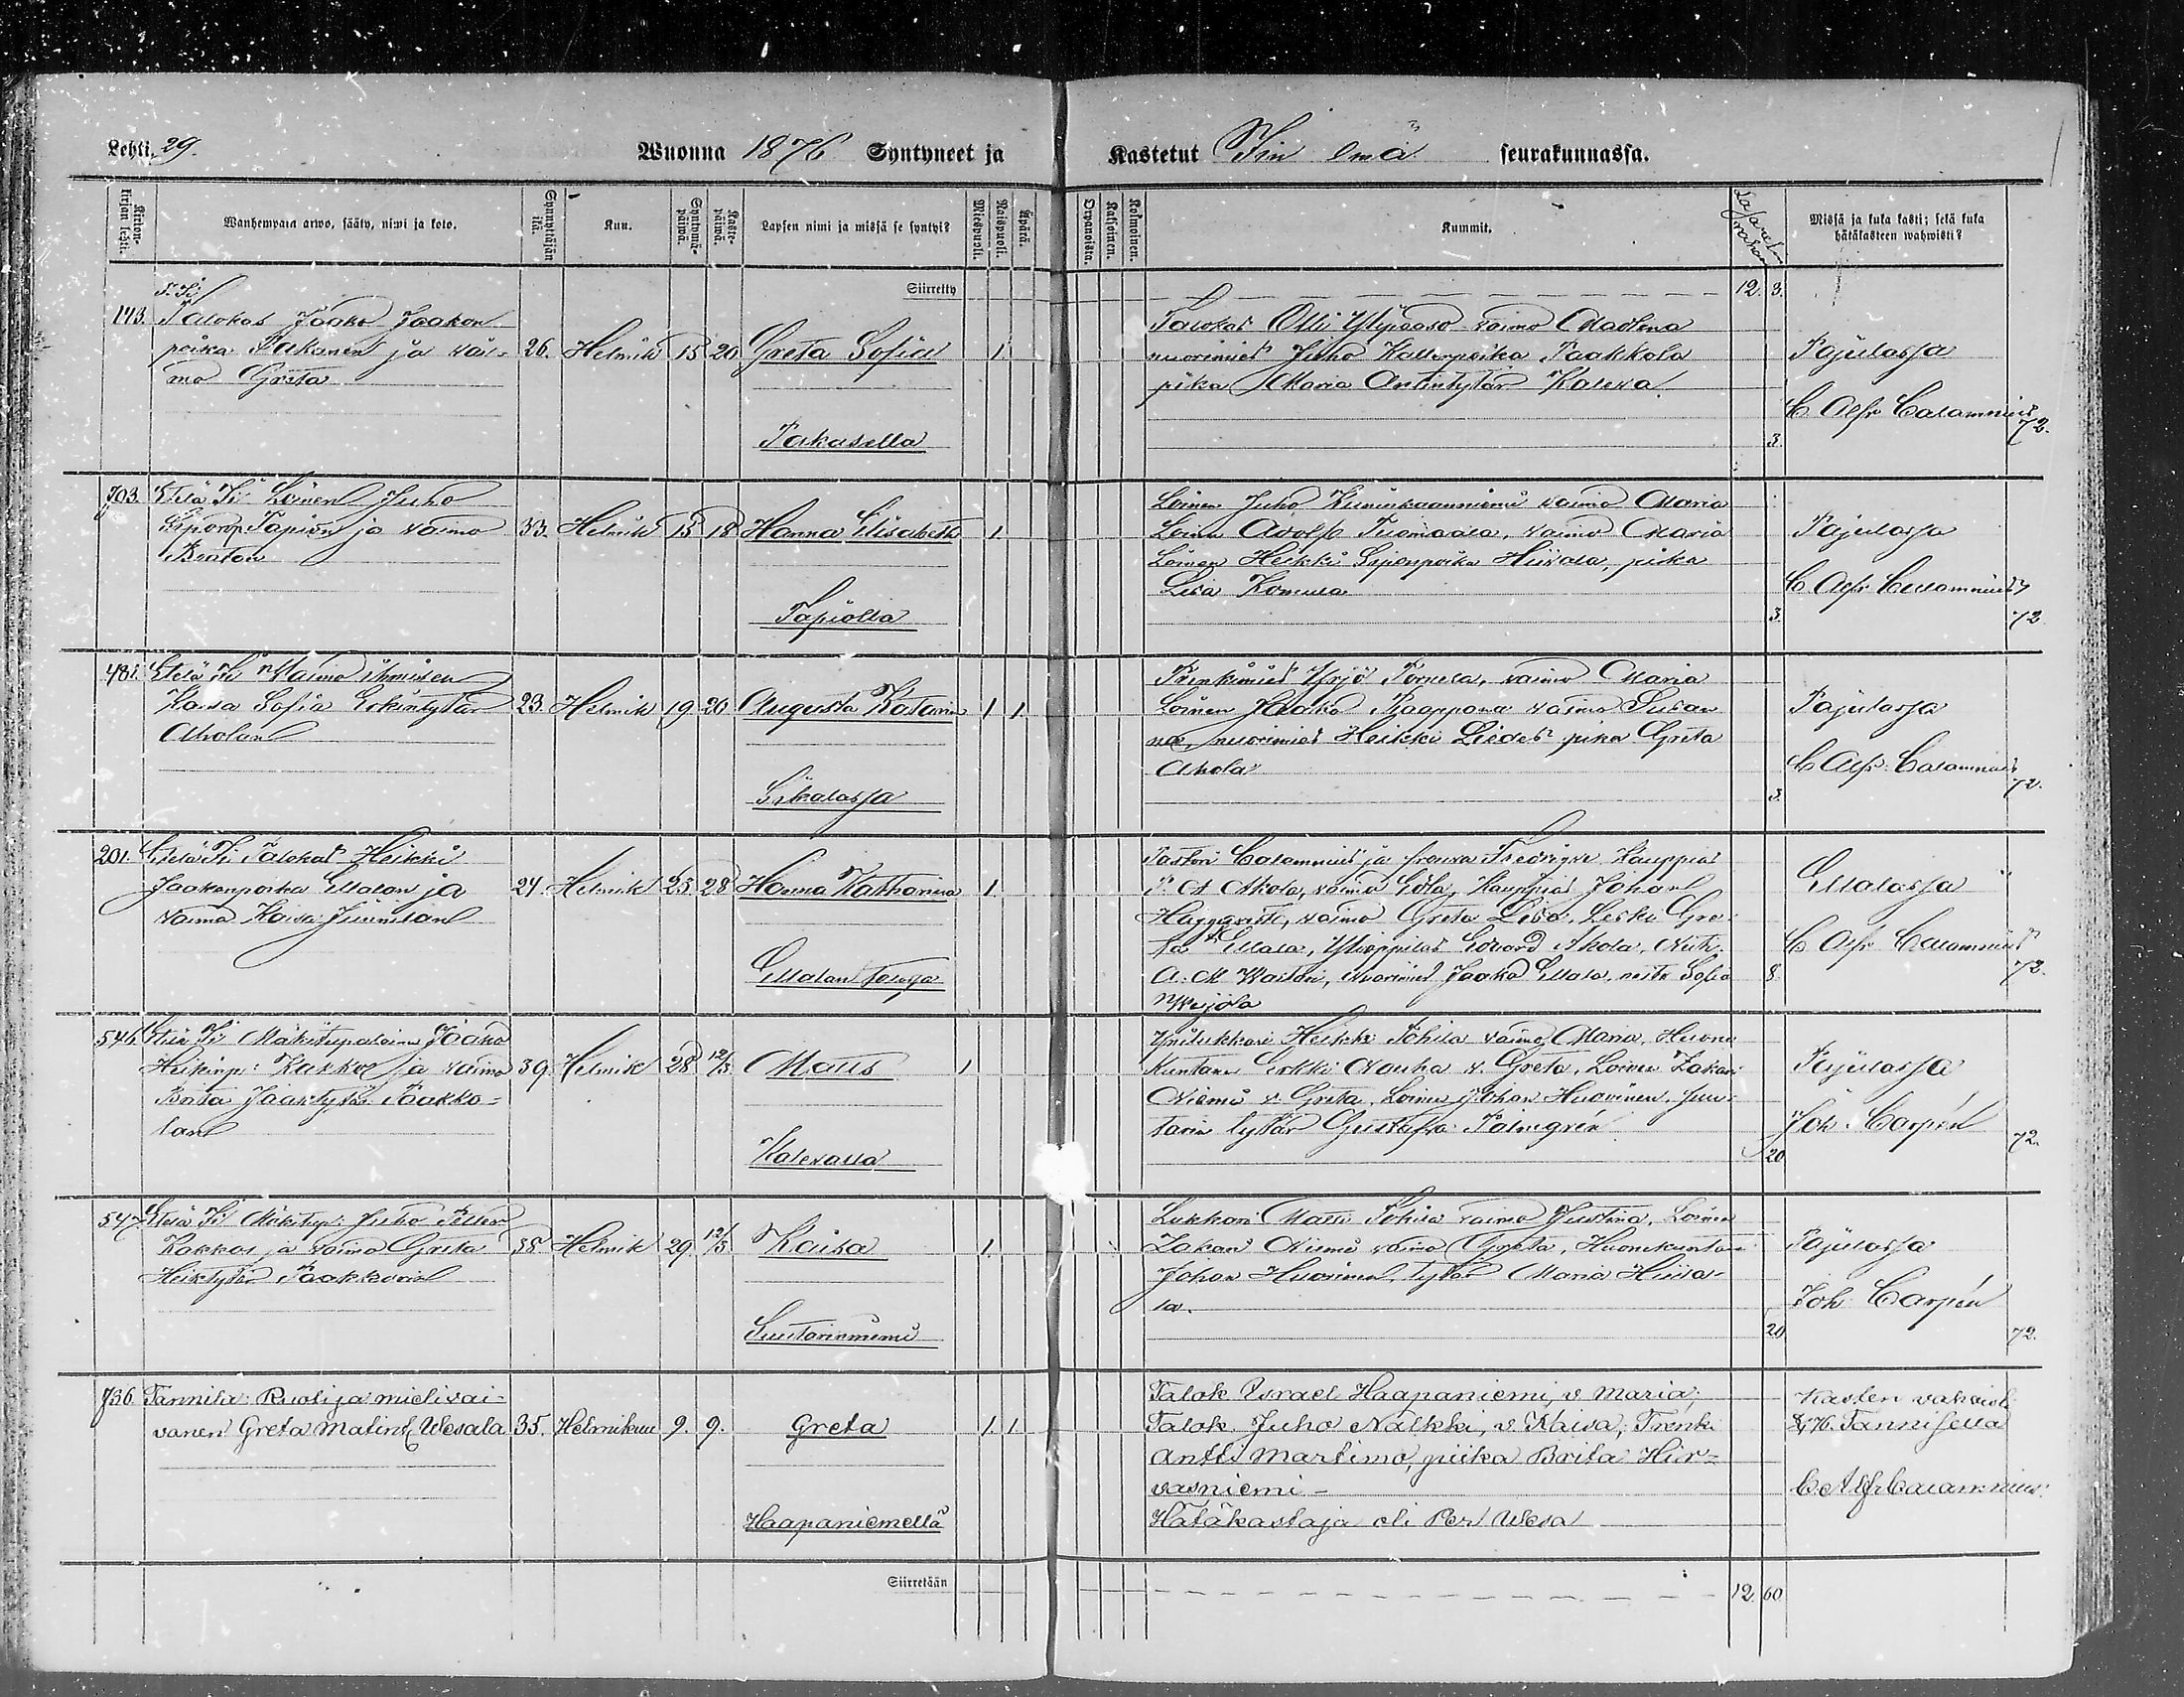 Lehti 29.
Wuonna 1876 Syntyneet ja
Kastetut Iin emä seurakunnassa.
Kirkonkirjan lehti.
Wanhempain arwo, sääty, nimi ja koto.
Synnyttäjän ikä.
Kuu.
Syntymäpäiwä.
Kastepäiwä.
Lapsen nimi ja missä se syntyi?
Miespuoli.
Naispuoli.
Äpärä.
Orpanoista.
Kaksoinen.
Kolmoinen.
Kummit.
Missä ja kuka kasti; sekä kuka hätäkasteen wahwisti?
Siirretty
12. 3.
P. Ii
143. Talokas Jaako Jaakon
poika Pakanen ja vai-
mo Greta
26. Helmik 15 20 Greta Sofia 1
Pakasella
Talokas Olli Ylipaaso vaimo Madlena
nuorimies Juho Kallenpoika Paakkola
piika Maria Antintytär Kaleva.
3.
Pajulassa
C Alfr Calamnius
72.
703. Etelä Ii Loinen Juho
Siponp. Tapion ja vaimo
Beatan
33. Helmik 15 18 Hanna Elisabeth 1.
Tapiolla
Loinen Juho Kuninkaanniemi vaimo Maria
Loinen Adolf Tuomaala, vaimo Maria
Loinen Heikki Siponpoika Hiivala, piika
Lisa Komula
3.
Pajulassa
C Alfr Calamnius
72
481. Etelä Ii Vaimo ihmisen
Kaisa Sofia Erkintytär
Aholan
23. Helmik 19 20 Augusta Katarina 1 1.
Sikalassa
Renkimies Yrjö Tornela, vaimo Maria
Loinen Jaako Kaappana vaimo Susan
na, nuorimies Heikki Liedes piika Greta
Ahola
3.
Pajulassa
C Alfr. Calamnius
72.
201. Etelä Ii Talokas Heikki
Jaakonpoika Ellalan ja
vaimo Kaisa Juunilan
24. Helmik 23. 28 Hanna Katharina 1.
Ellalan talossa
Pastori Calamnius ja frouva Fredrique Kauppias
P. A Ahola, vaimo Edla, Kauppias Johan
Haggqvist, vaimo Greta Lisa, Leski Gre-
ta Ellala, Ylioppilas Edvard Ahola,
nuorimies Jaako Ellala, neito Sofia
8.
Ellalassa
C Alfr Calamnius
72.
546. Etelä Ii Mäkitupalainen Jaako
Heikinp. Kakkon ja vaimo
Brita Jaaktytär Paakko-
lan
39. Helmik 28 12/3. Matts 1
Kalevalla
Heikki Tohila vaimo Maria, Huone
kuntanen Erkki Nauha v. Greta, Loinen Zakari
Niemi v. Greta, Loinen Johan Huovinen, Suu-
tarin tytär Gustafva Palmgrén
20
Pajulassa
Joh. Carpén
72.
547. Etelä Ii Mäkitup. Juho Petter
Kakkon ja vaimo Greta
Heiktytär Paakkolan
38. Helmik 29. 12/3. Kaisa 1.
Suutarinniemi
Lukkari Matti Tohila vaimo Justina, Loinen
Zakari Niemi vaimo Greta, Huonekuntanen
Johan Huovinen, tytär Maria Hiiva-
la.
20
Pajulassa
Joh. Carpén
72.
736 Tannila: Ruotija mielivai-
vanen Greta Matint. Wesala
35. Helmikuu 9. 9. Greta 1. 1.
Haapaniemellä
Talok. Israel Haapaniemi, v. Maria;
Talok. Juho Nalkki, v. Kaisa; Trenki
Antti Martimo, piika Brita Hir-
vasniemi –
Hätäkastaja oli Per Wesa
Kasten vahvist.
76. Tannilella
C Alfr Calamnius
Siirretään
12. 60